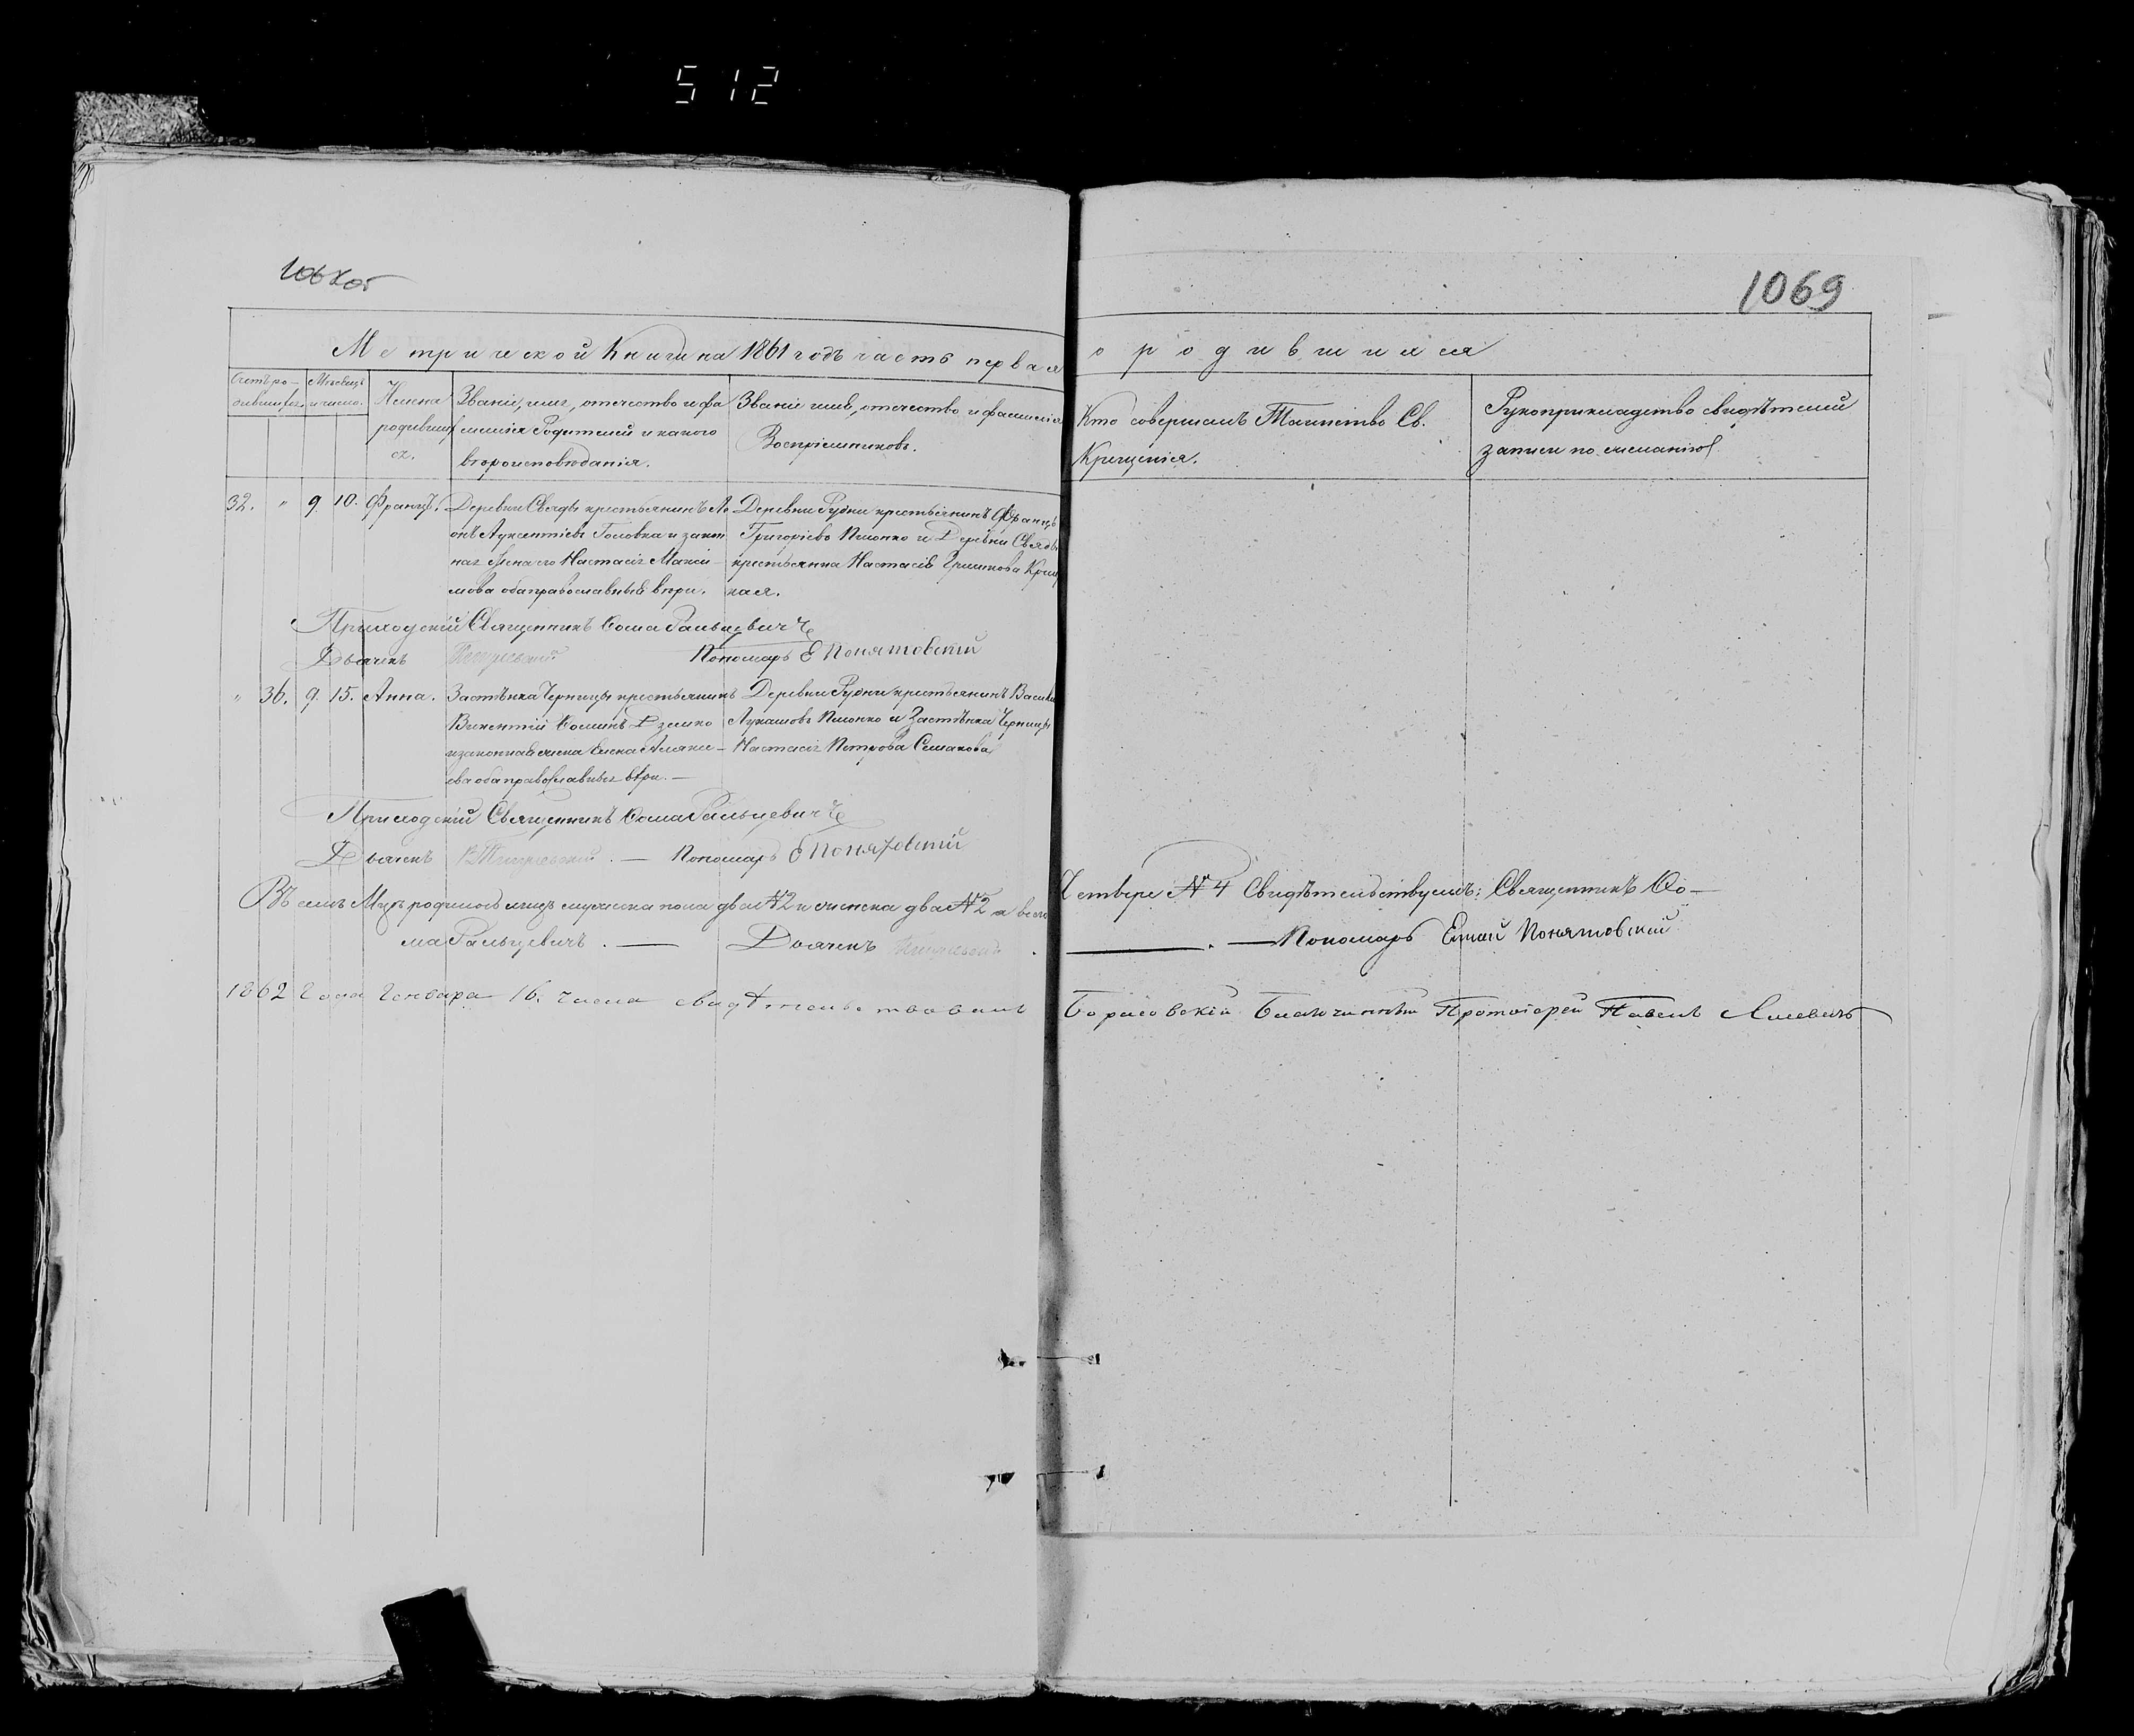 512
1068об
1069
Метрической Книги на 1861 годъ часть первая о родившихся
Счетъ ро-
дившихся.
Мѣсяцъ
и число.
Имена
родивших
ся.
Званіе, имя, отечество и фа
милія Родителей и какого
вѣроисповѣданія.
Званіе имя, отечество и фамилія
Воспріемниковъ.
Кто совершалъ Таинство Св.
Крещенія.
Рукоприкладство свидѣтелей
записи по желанію
32. " 9 10. Францъ.
Деревни Свяды крестьянинъ Ле
онъ Авксентіевъ Головка и закон
ная жена его Настасія Макси
мова оба православной вѣры.
Деревни Рудни крестьянинъ Францъ
Григорьевъ и Деревни Свяды
крестьянка Настасія
ная.
Приходскій Священникъ Ѳома Гальцевичъ
Дьячекъ Пономарь Е Понятовскій
" 36. 9. 15. Анна.
Застѣнка Черницы крестьянинъ
Викентій Ѳоминъ Дземко
и законная жена Елена Алекс
ева оба православной вѣры. —
Деревни Рудни крестьянинъ Васили
Лукашовъ и Застѣнка Черницы
Настасія Петрова Семакова
Приходскій Священникъ Ѳома Гальцевичъ
Дьячекъ . — Пономарь Е Понятовскій
Въ семъ Мцѣ родилось лицъ мужеска пола два №2 и женска два №2 а всего Четверо №4 Свидѣтельствуемъ: Священникъ Ѳо—
ма Гальцевичъ. — Дьячекъ . — Пономарь Емил Понятовскій
1862 Года Генваря 16. числа свидѣтельствовалъ Борисовскій Благочинный Протоіерей Павелъ